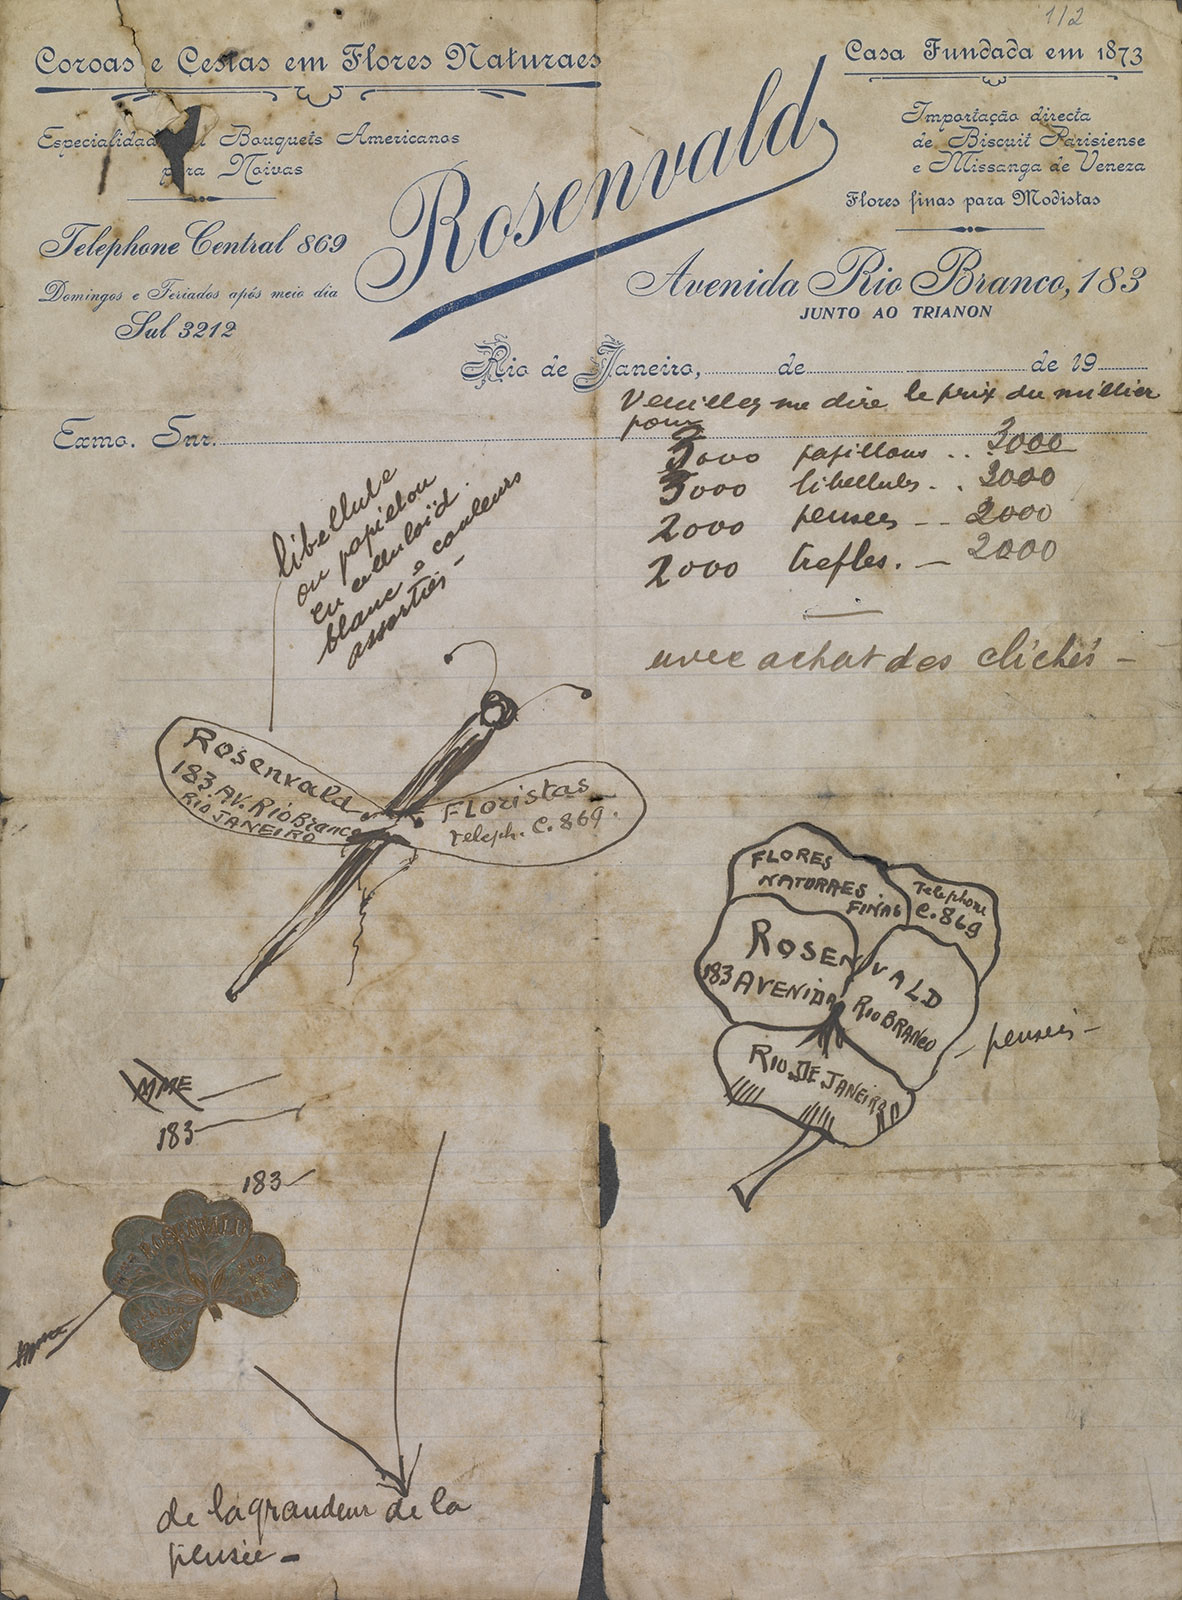 1/2
Coroas e Cestas em Flores Naturaes
Casa Fundada em 1873
Rosenvald
Especialidad Bouquets Americanos
para Noivas
Importação directa
de Biscuit Parisiense
e Missanga de Veneza
Flores finas para Modistas
Telephone Central 869
Domingos e Feriados após meio dia
Sul 3212
Avenida Rio Branco, 183
JUNTO AO TRIANON
Rio de Janeiro, de de 19
Exmo. Snr.
Veuillez me dire le prix du millier
pour
3000 papillons .. 3000
3000 libellules. . 3000
2000 pensees -- 2000
2000 trefles. - 2000
avec achat des clichés -
libellule
ou papillon
en celluloïd.
blanc e couleurs
assorties -
Rosenvald
183. AV. Rio Branco
RIO JANEIRO
FLoristas
Teleph. C. 869.
FLORES
NATURAES.
FINAS
Telephone
C. 869
ROSENVALD
183 AVENIDA RIO BRANCO
RIO DE JANEIRO
- pensées -
MME
183
183
ROSENVALD
de la grandeur de la
pensée -